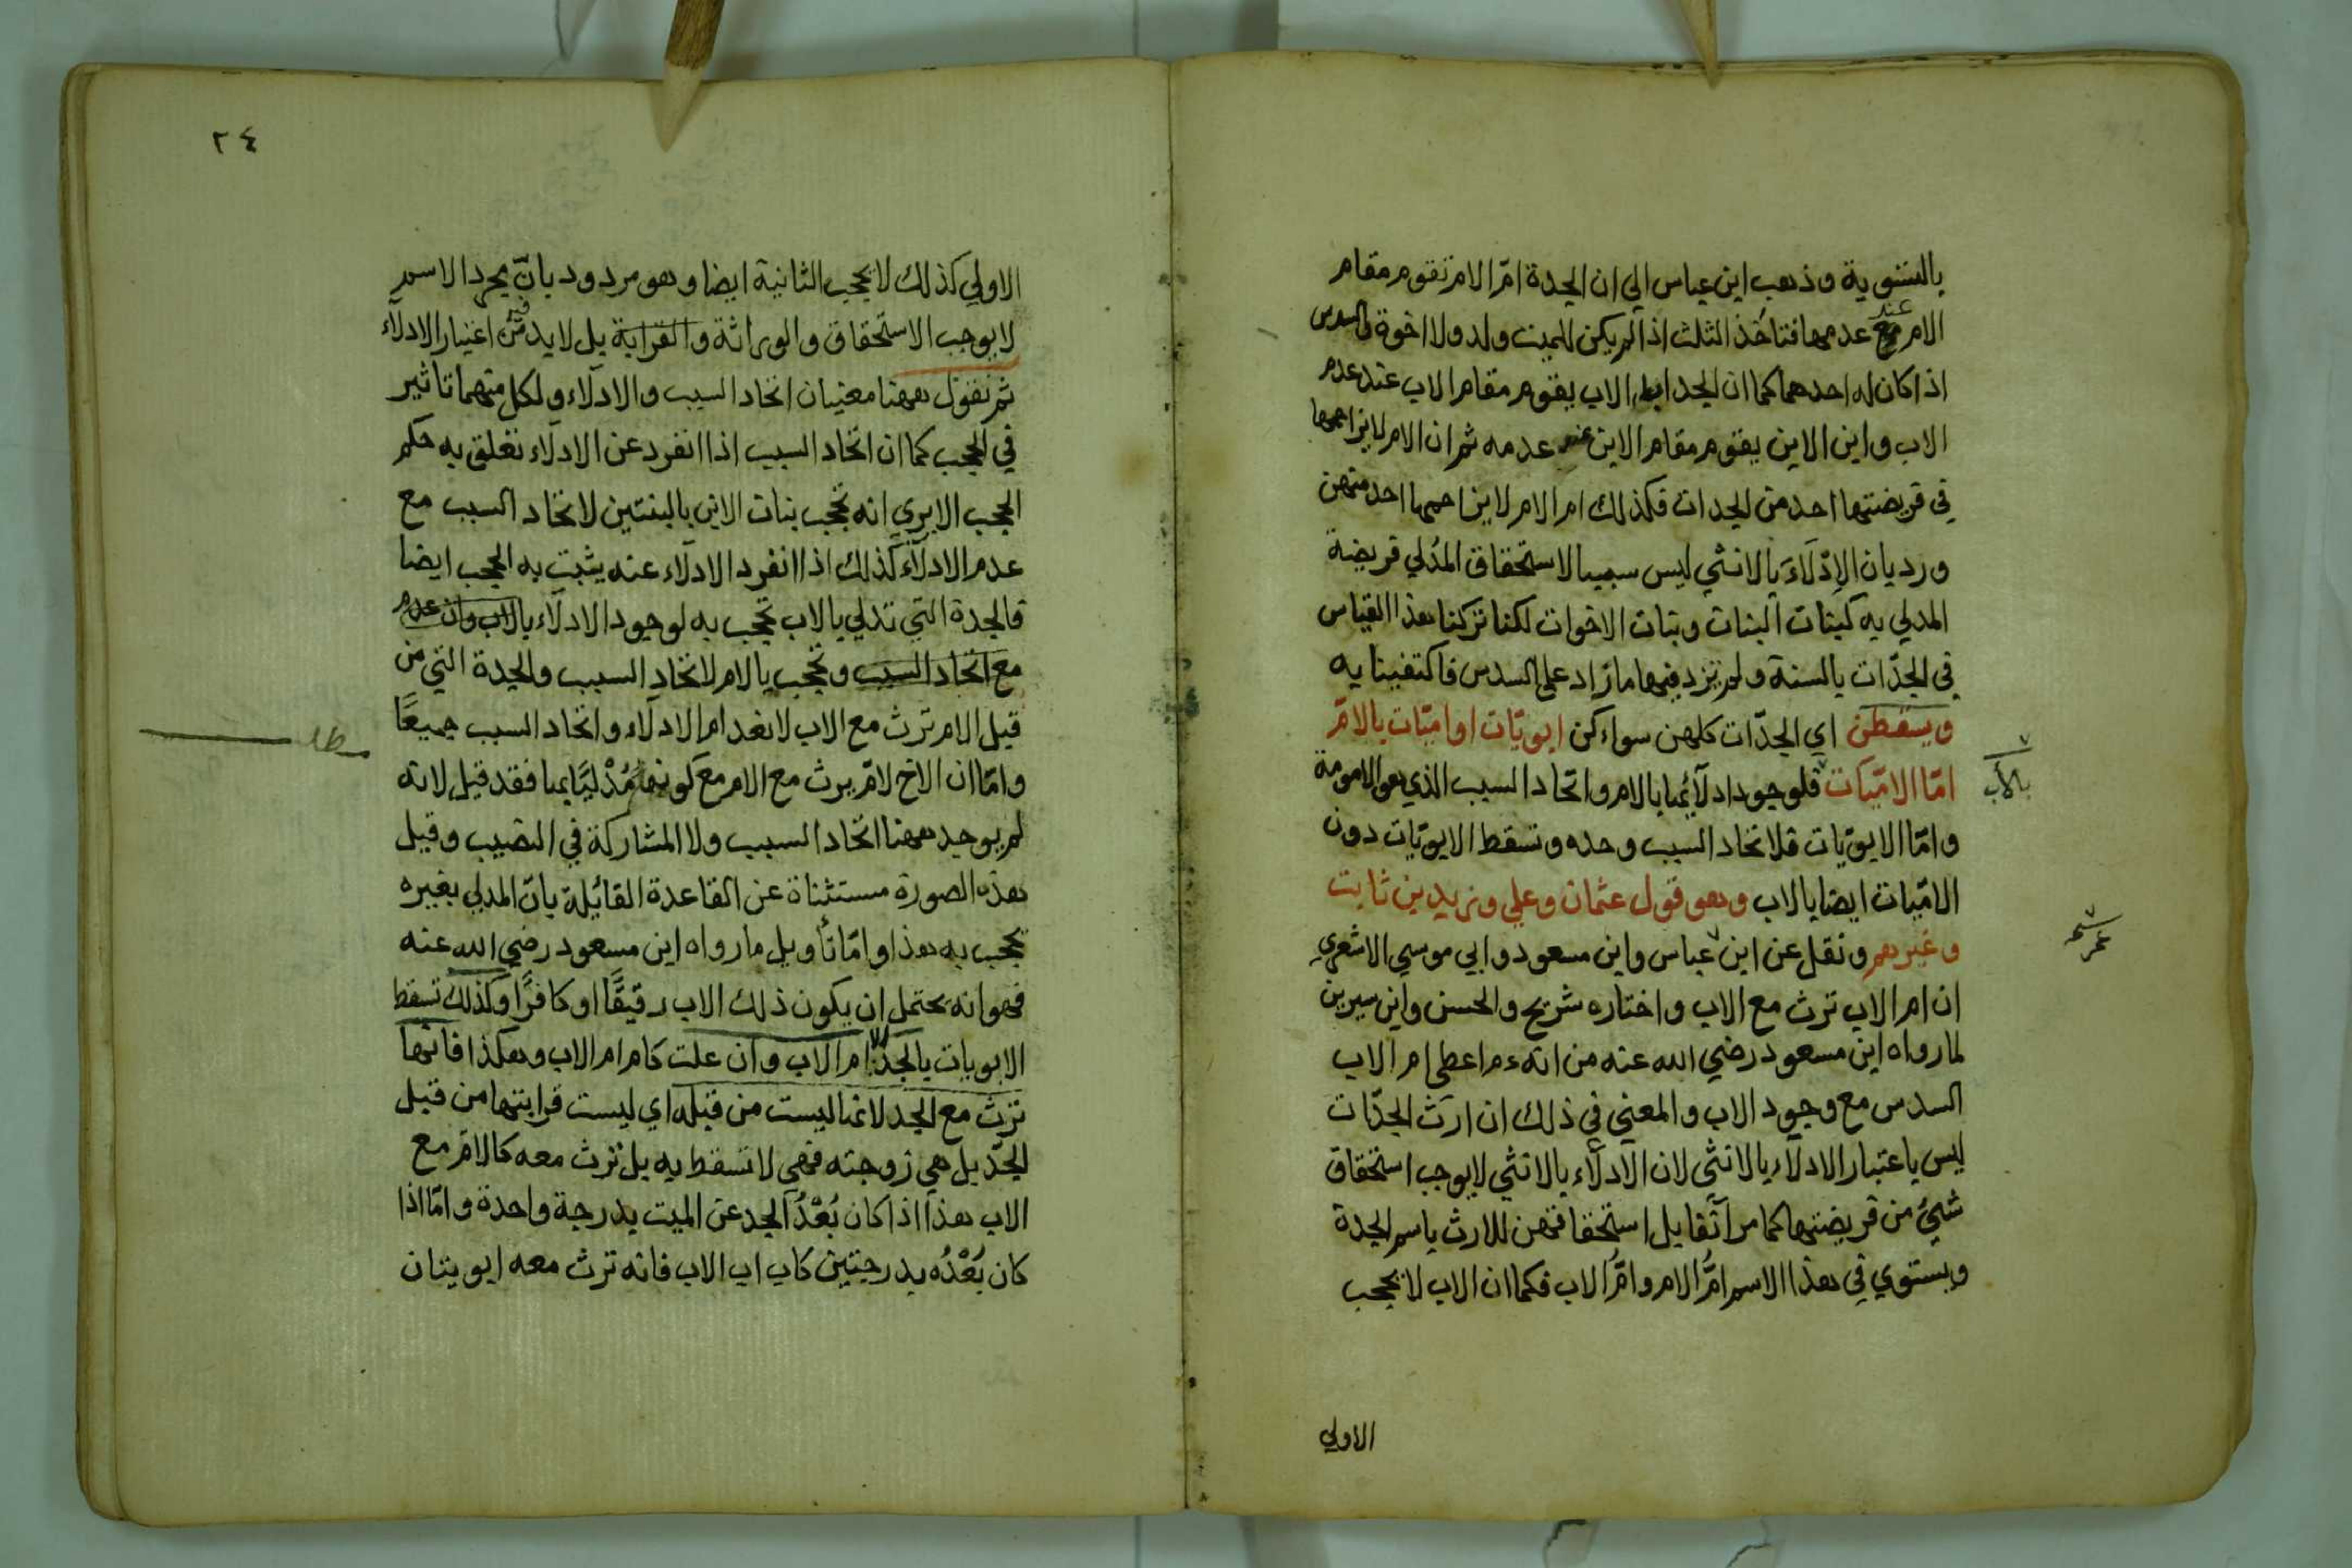 بالتسوية وذهب ابن عباس الي ان الجدة امّ الام تقوم مقام
الام عند عدمها فتاخذ الثلث اذا لم يكن للميت ولد ولا اخوة والسدس
اذا كان له احدهما كما ان الجد اب الاب يقوم مقام الاب عند عدم
الاب وابن الابن يقوم مقام الابن عند عدمه ثم ان الام لا يزاحمها
في فريضتها احد من الجدات فكذلك ام الام لا يزاحمها احد منهن
ورد بان الاِدْلَاءَ بالانثي ليس سببا لاستحقاق المُدلي فريضة
المدلي به كبنات البنات وبنات الاخوات لكنا تركنا هذا القياس
في الجدّات بالسنة ولم نزد فيها ما زاد علي السدس فاكتفينا به
ويسقطن اي الجدّات كلهن سواء كن ابويّات او اميّات بالامّ
امّا الاميّات فلوجود ادلآئها بالام واتحاد السبب الذي هو الامومة
بالأب
وامّا الابويّات فلاتحاد السبب وحده وتسقط الابويّات دون
الاميّات ايضا بالاب وهو قول عثمان وعلي وزيد بن ثابت
وغيرهم ونقل عن ابن عباس وابن مسعود وابي موسي الاشعري
ان ام الاب ترث مع الاب واختاره شريح والحسن وابن سيرين
لما رواه ابن مسعود رضي الله عنه من انه ءم اعطي ام الاب
السدس مع وجود الاب والمعني في ذلك ان ارث الجدّات
ليس باعتبار الادلآء بالانثي لان الادلآء بالانثي لا يوجب استحقاق
شيئ من فريضتها كما مر آنفا بل استحقاقهن للارث باسم الجدة
ويستوي في هذا الاسم امُّ الام وامُّ الاب فكما ان الاب لا يحجب
الاولي
٢٤
الاولي كذلك لا يحجب الثانية ايضا وهو مردود بانّ مجرد الاسم
لا يوجب الاستحقاق والوراثة والقرابة بل لا بد من اعتبار الادلآء
ثم نقول ههنا معنيان اتحاد السبب والادلآء ولكل منهما تاثير
في الحجب كما ان اتحاد السبب اذا انفرد عن الادلآء تعلق به حكم
الحجب الا يري انه تحجب بنات الابن بالبنتين لاتحاد السبب مع
عدم الادلآء كذلك اذا انفرد الادلآء عنه يثبت به الحجب ايضا
فالجدة التي تدلي بالاب تحجب به لوجود الادلآء بالاب وان عدم
مع اتحاد السبب وتحجب بالام لاتحاد السبب والجدة التي من
قبل الام ترث مع الاب لانعدام الادلآء واتحاد السبب جميعًا
وامّا ان الاخ لامّ يرث مع الام مع كونه مُدْليًا بها فقد قيل لانه
لم يوجد ههنا اتحاد السبب ولا المشاركة في النصيب وقيل
هذه الصورة مستثناة عن القاعدة القائلة بانّ المدلي بغيره
يحجب به هذا وامّا تأويل ما رواه ابن مسعود رضي الله عنه
فهو انه يحتمل ان يكون ذلك الاب رقيقًا او كافرًا وكذلك تسقط
الابويات بالجد الا ام الاب وان علت كام ام الاب وهكذا فانّها
ترث مع الجد لانها ليست من قبله اي ليست قرابتها من قبل
الجدّ بل هي زوجته فهي لا تسقط به بل ترث معه كالامّ مع
الاب هذا اذا كان بُعْدُ الجد عن الميت بدرجة واحدة وامّا اذا
كان بُعْدُه بدرجتين كاب اب الاب فانه ترث معه ابويتان